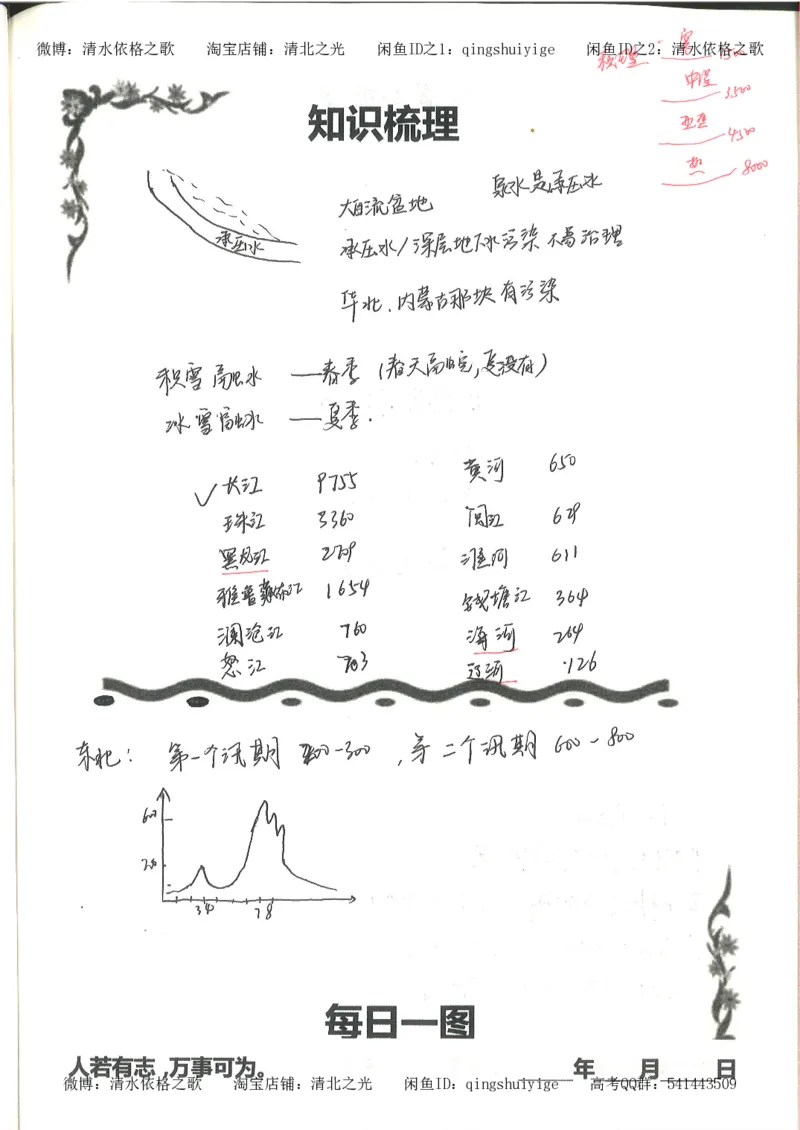 微博：清水依格之歌 淘宝店铺：清北之光 闲鱼ID之1：qingshuiyige 闲鱼ID之2：清水依格之歌
积温 寒
中温 3500
4500
8000
知识梳理
泉水是承压水
自流盆地
承压水
承压水/深层地下水污染 不易治理
华北、内蒙古那块有污染
积雪融水 — 春季（春天融完，夏没有）
冰雪融水 — 夏季.
✓长江 9755 黄河 650
珠江 3360 闽江 629
黑龙江 2709 淮河 611
雅鲁藏布江 1654 钱塘江 364
澜沧江 760 海河 264
怒江 703 辽河 126
东北： 第一个汛期 200-300 ，第二个汛期 600-800
600
3 4 7 8
每日一图
人若有志,万事可为。 年 月 日
微博：清水依格之歌 淘宝店铺：清北之光 闲鱼ID：qingshuiyige 高考QQ群：541443509